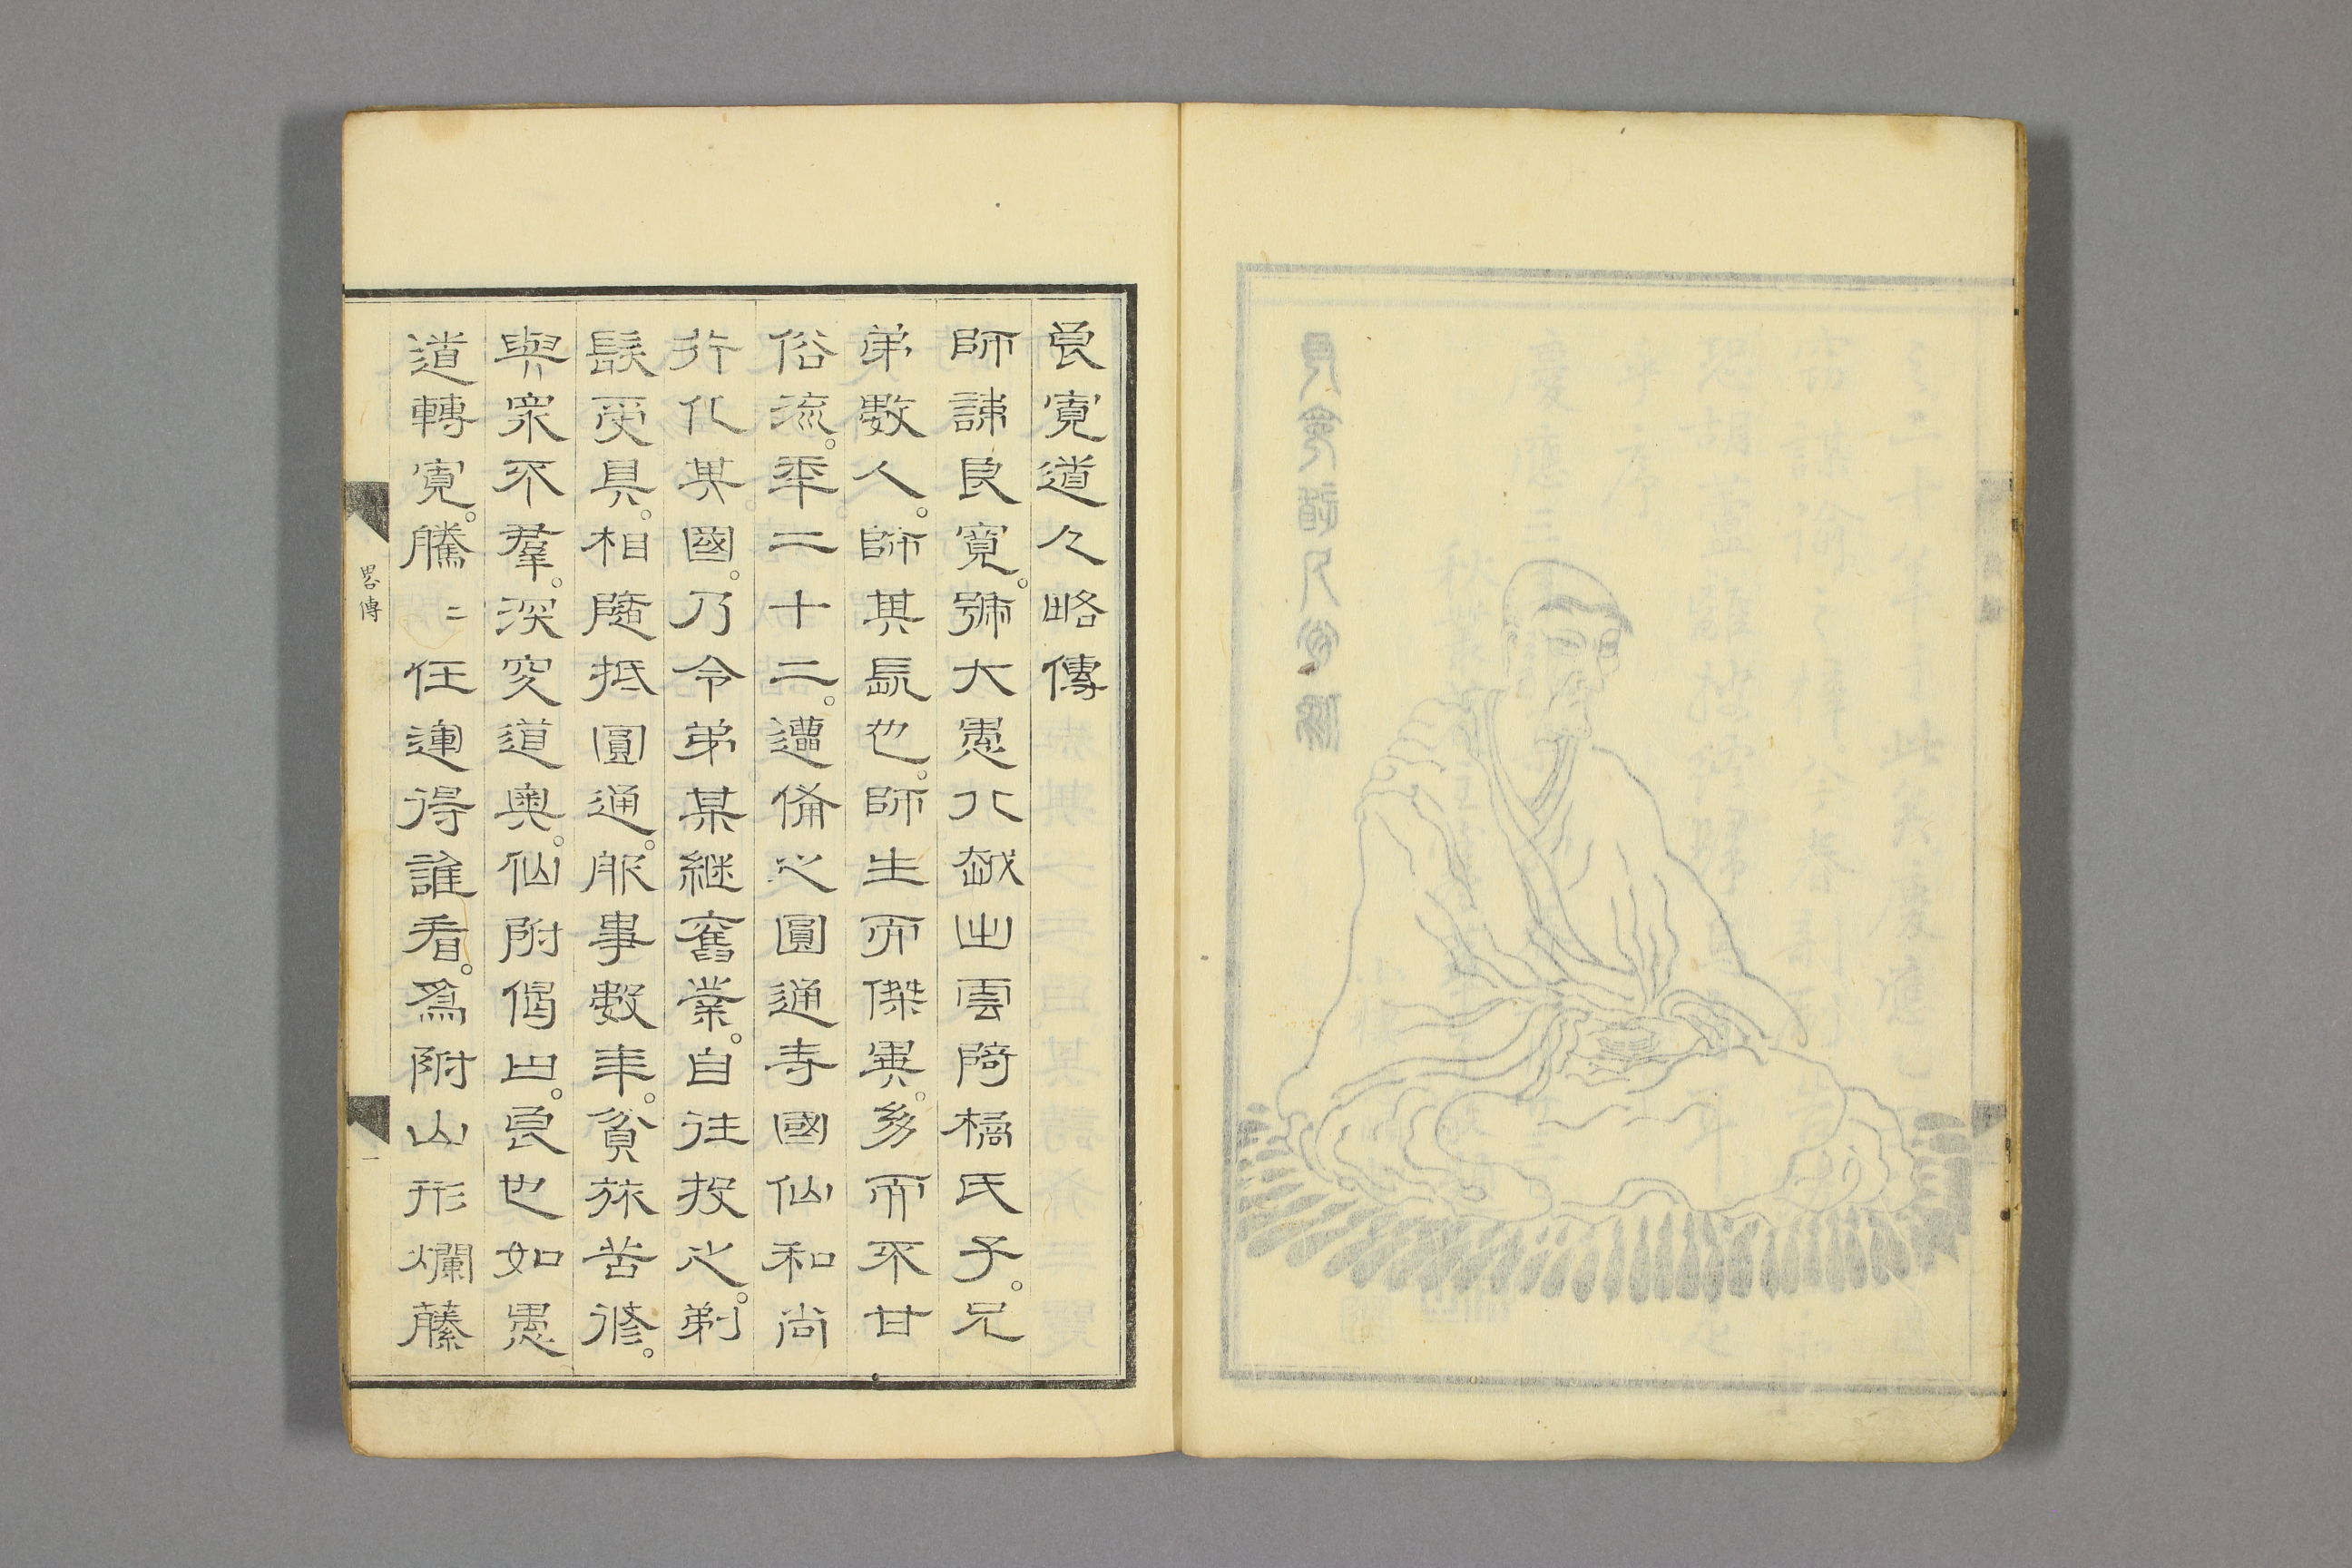 良寛道人略傳
師諱良寛。號大愚。北越出雲崎橘氏子。兄
弟數人。師其長也。師生而傑異。幼而不甘
俗流。年二十二。遭備之圓通寺國仙和尚
行化其國。乃令弟某継舊業。自往投之。剃
髮受具。相隨抵圓通。服事數年。貧旅苦修。
與衆不羣。深究道奧。仙附偈曰。良也如愚
道轉寛。騰二任運得誰看。爲附山形爛藤
畧傳
一